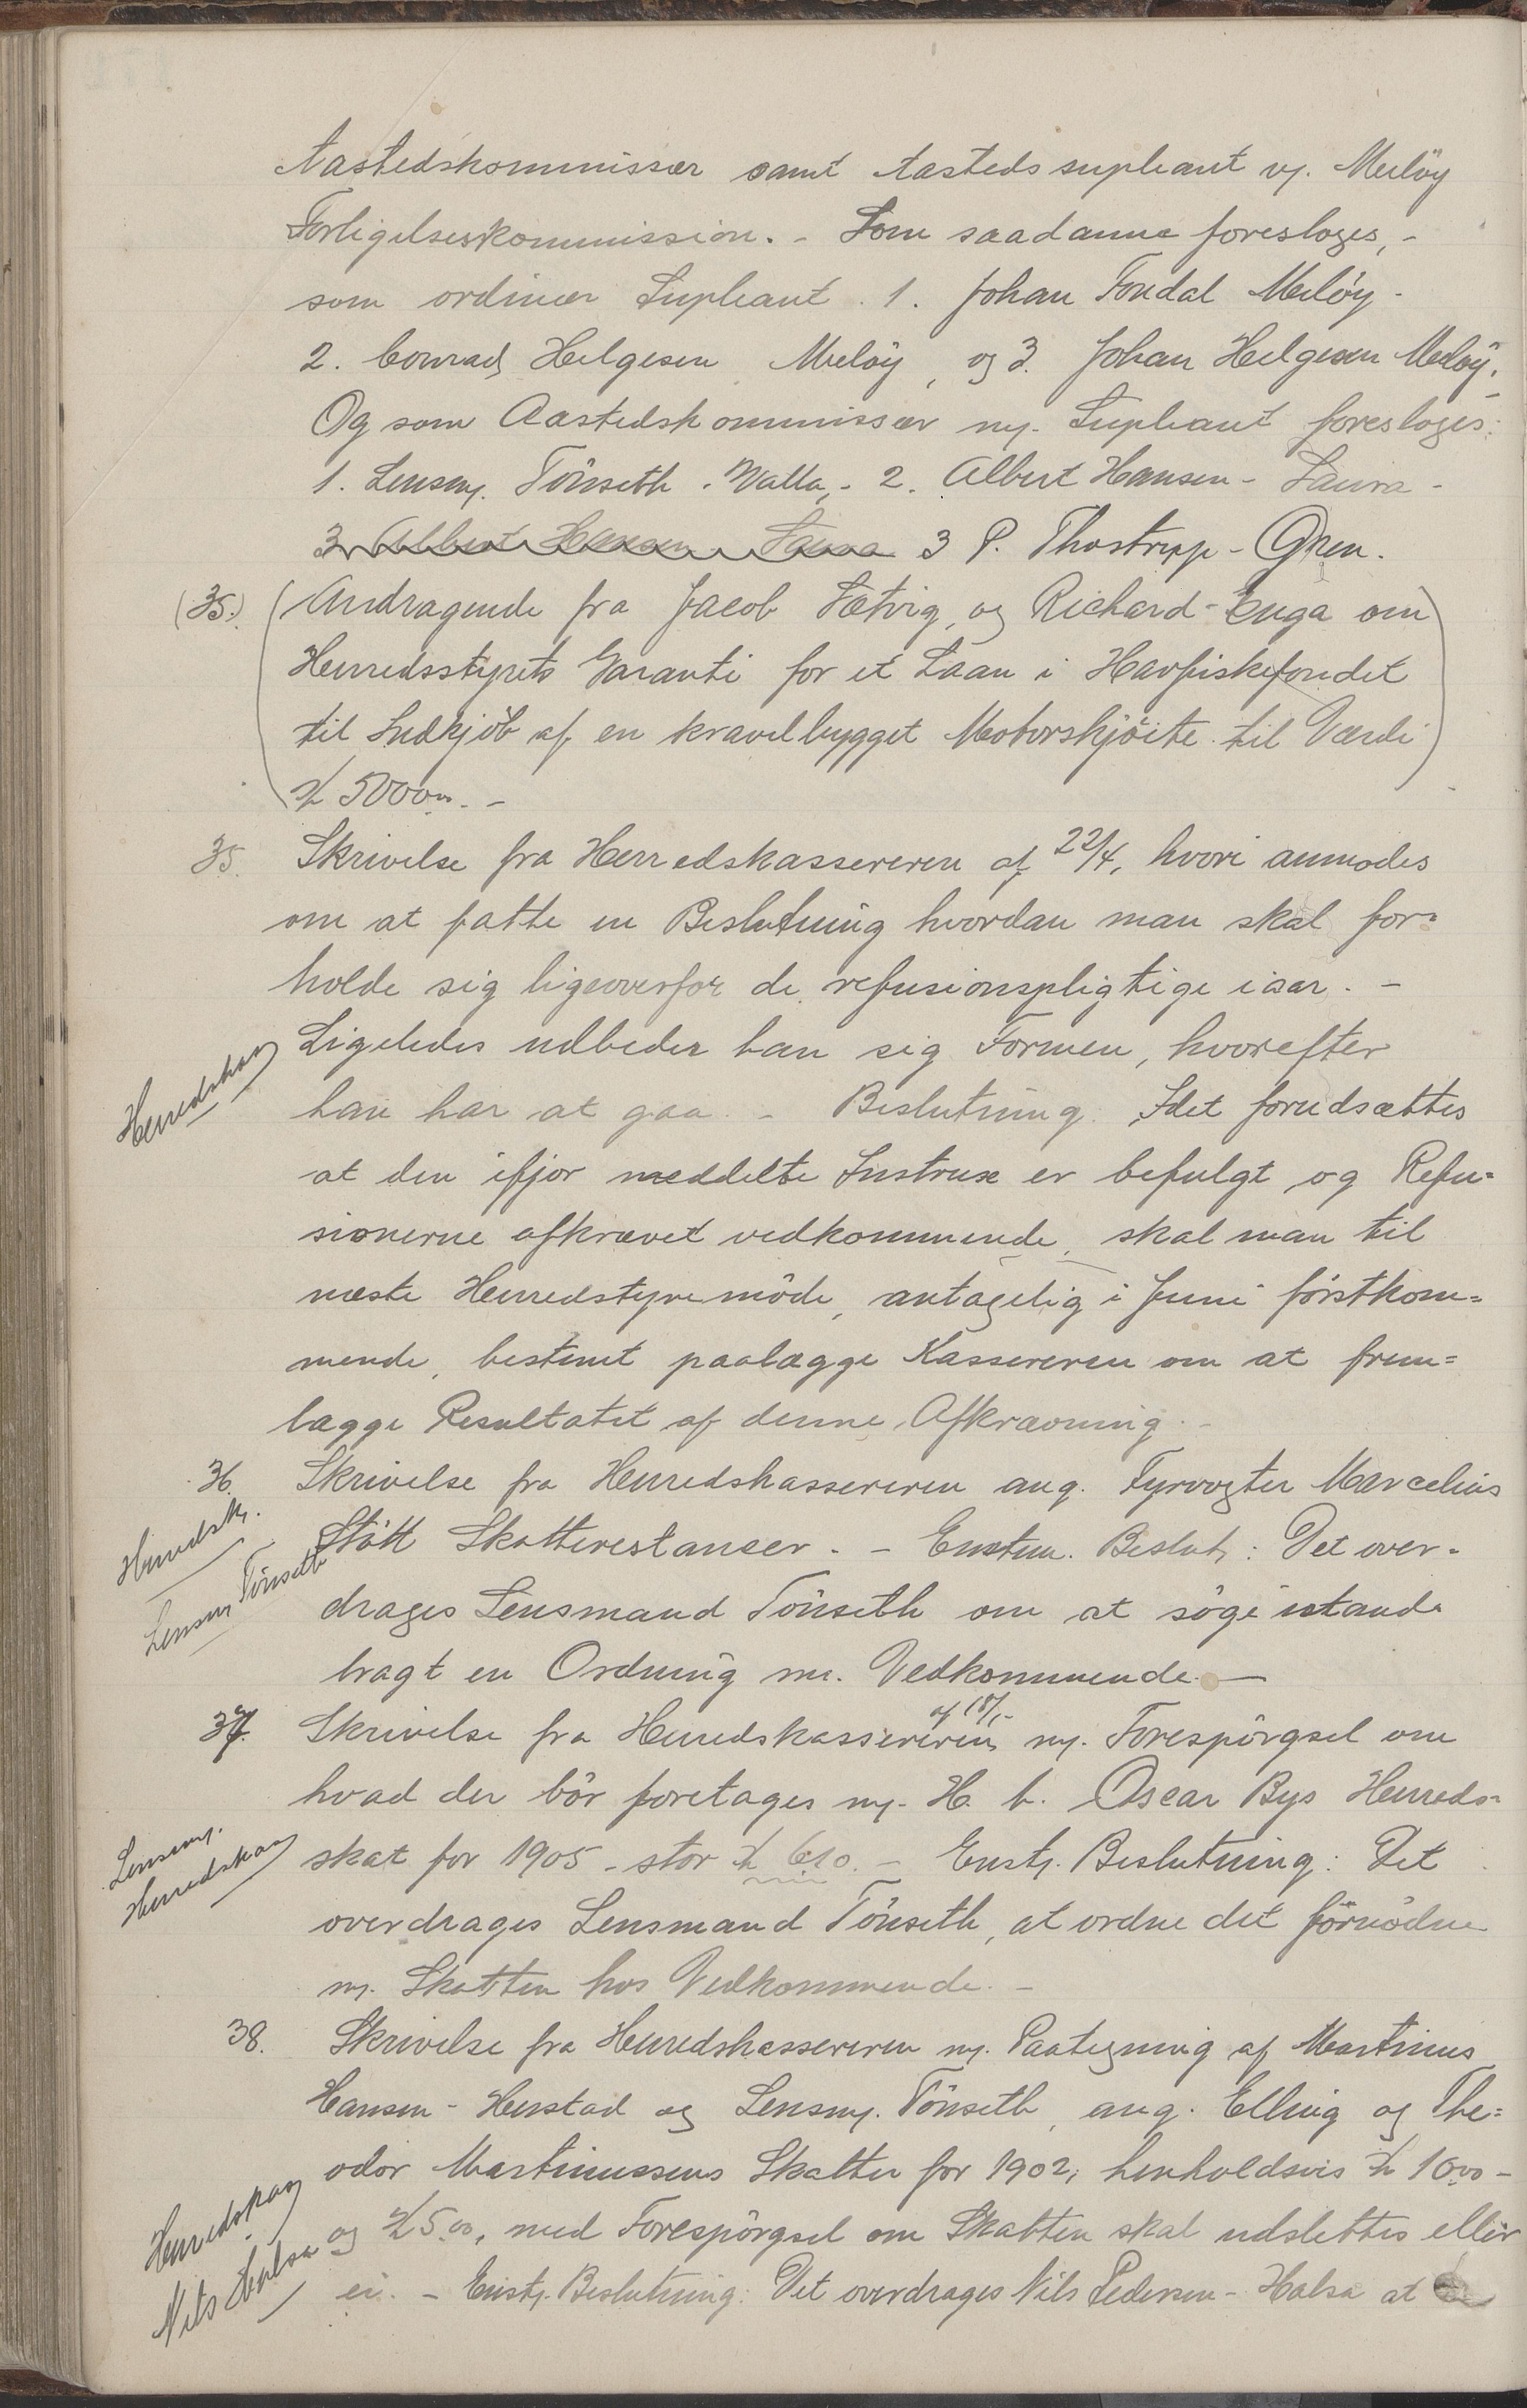 Aastedskommissær samt Aasteds supleant vg. Meløy
Forligelseskommission. - Som saadanne foresloges, -
som ordinær Supleant . 1. Johan Fondal Meløy -
2. Conrad Helgesen Meløy, og 3. Johan Helgesen Meløy.
Og som Aastedskommissær m. Supleant foresloges:
1. Lensm. Tönseth - Valla, - 2. Albert Hansen - Laura -
3 Albert Hansen Laura 3 P. Thostrup - Ørnen.
(35.) (Andragende fra Jacob Sætvig, og Richard - Enga om
Herredsstyrets Garanti for et Laan i Havfiskefondet
til Indkjöb af en kravelbygget Motorskjöite til Værdi
kr 5000 00. -)
35. Skrivelse fra Herredskassereren af 22/4, hvori anmodes
om at fatte en Beslutning hvordan man skal for=
holde sig ligeoverfor de refusionspligtige iaar. -
Ligeledes udbeder han sig Formen, hvorefter
Herredskas
han har at gaa. - Beslutning. Idet forudsættes
at den ifjor meddelte Instrux er befulgt og Refu=
sionerne afkrævet vedkommende, skal man til
næste Herredstyremöde, antagelig i Juni förstkom=
mende, bestemt paalægge Kassereren om at frem=
lægge Resultatet af denne Afkrævning. -
36. Skrivelse fra Herredskassereren ang. Fyrvogter Marcelius
Herredsk.
Stött Skatterestanser. - Enstem. Beslut: Det over=
Lensm Tönseth
drages Lensmand Tönseth om at söge istand
bragt en Ordning m. Vedkommende. -
af 18/1 -
37. Skrivelse fra Herredskassereren m. Forespörgsel om
hvad der bör foretages m. H. t. Oscar Bys Herreds=
Lensm.
Herredskas
skat for 1905 - stor kr 610. - Enst. Beslutning: Det
overdrages Lensmand Tönseth, at ordne det fornödne
m. Skatten hos Vedkommende. -
38. Skrivelse fra Herredskassereren m. Paategning af Martinus
Hansen - Herstad og Lensm. Tönseth, ang. Elling og The=
odor Martinussens Skatter for 1902, henholdsvis kr 10 00 -
Herredskas
og kr 5.00, med Forespörgsel om Skatten skal udslettes eller
Nils Halsa
ei. - Enst. Beslutning. Det overdrages Nils Pedersen - Halsa at